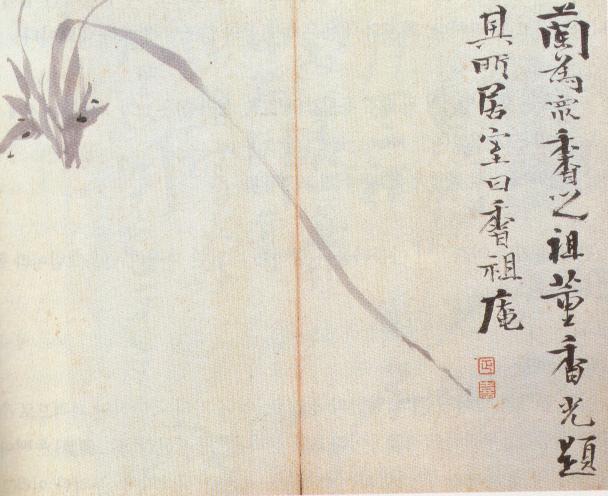 蘭為衆香之祖董香光題
其所居室曰香祖庵